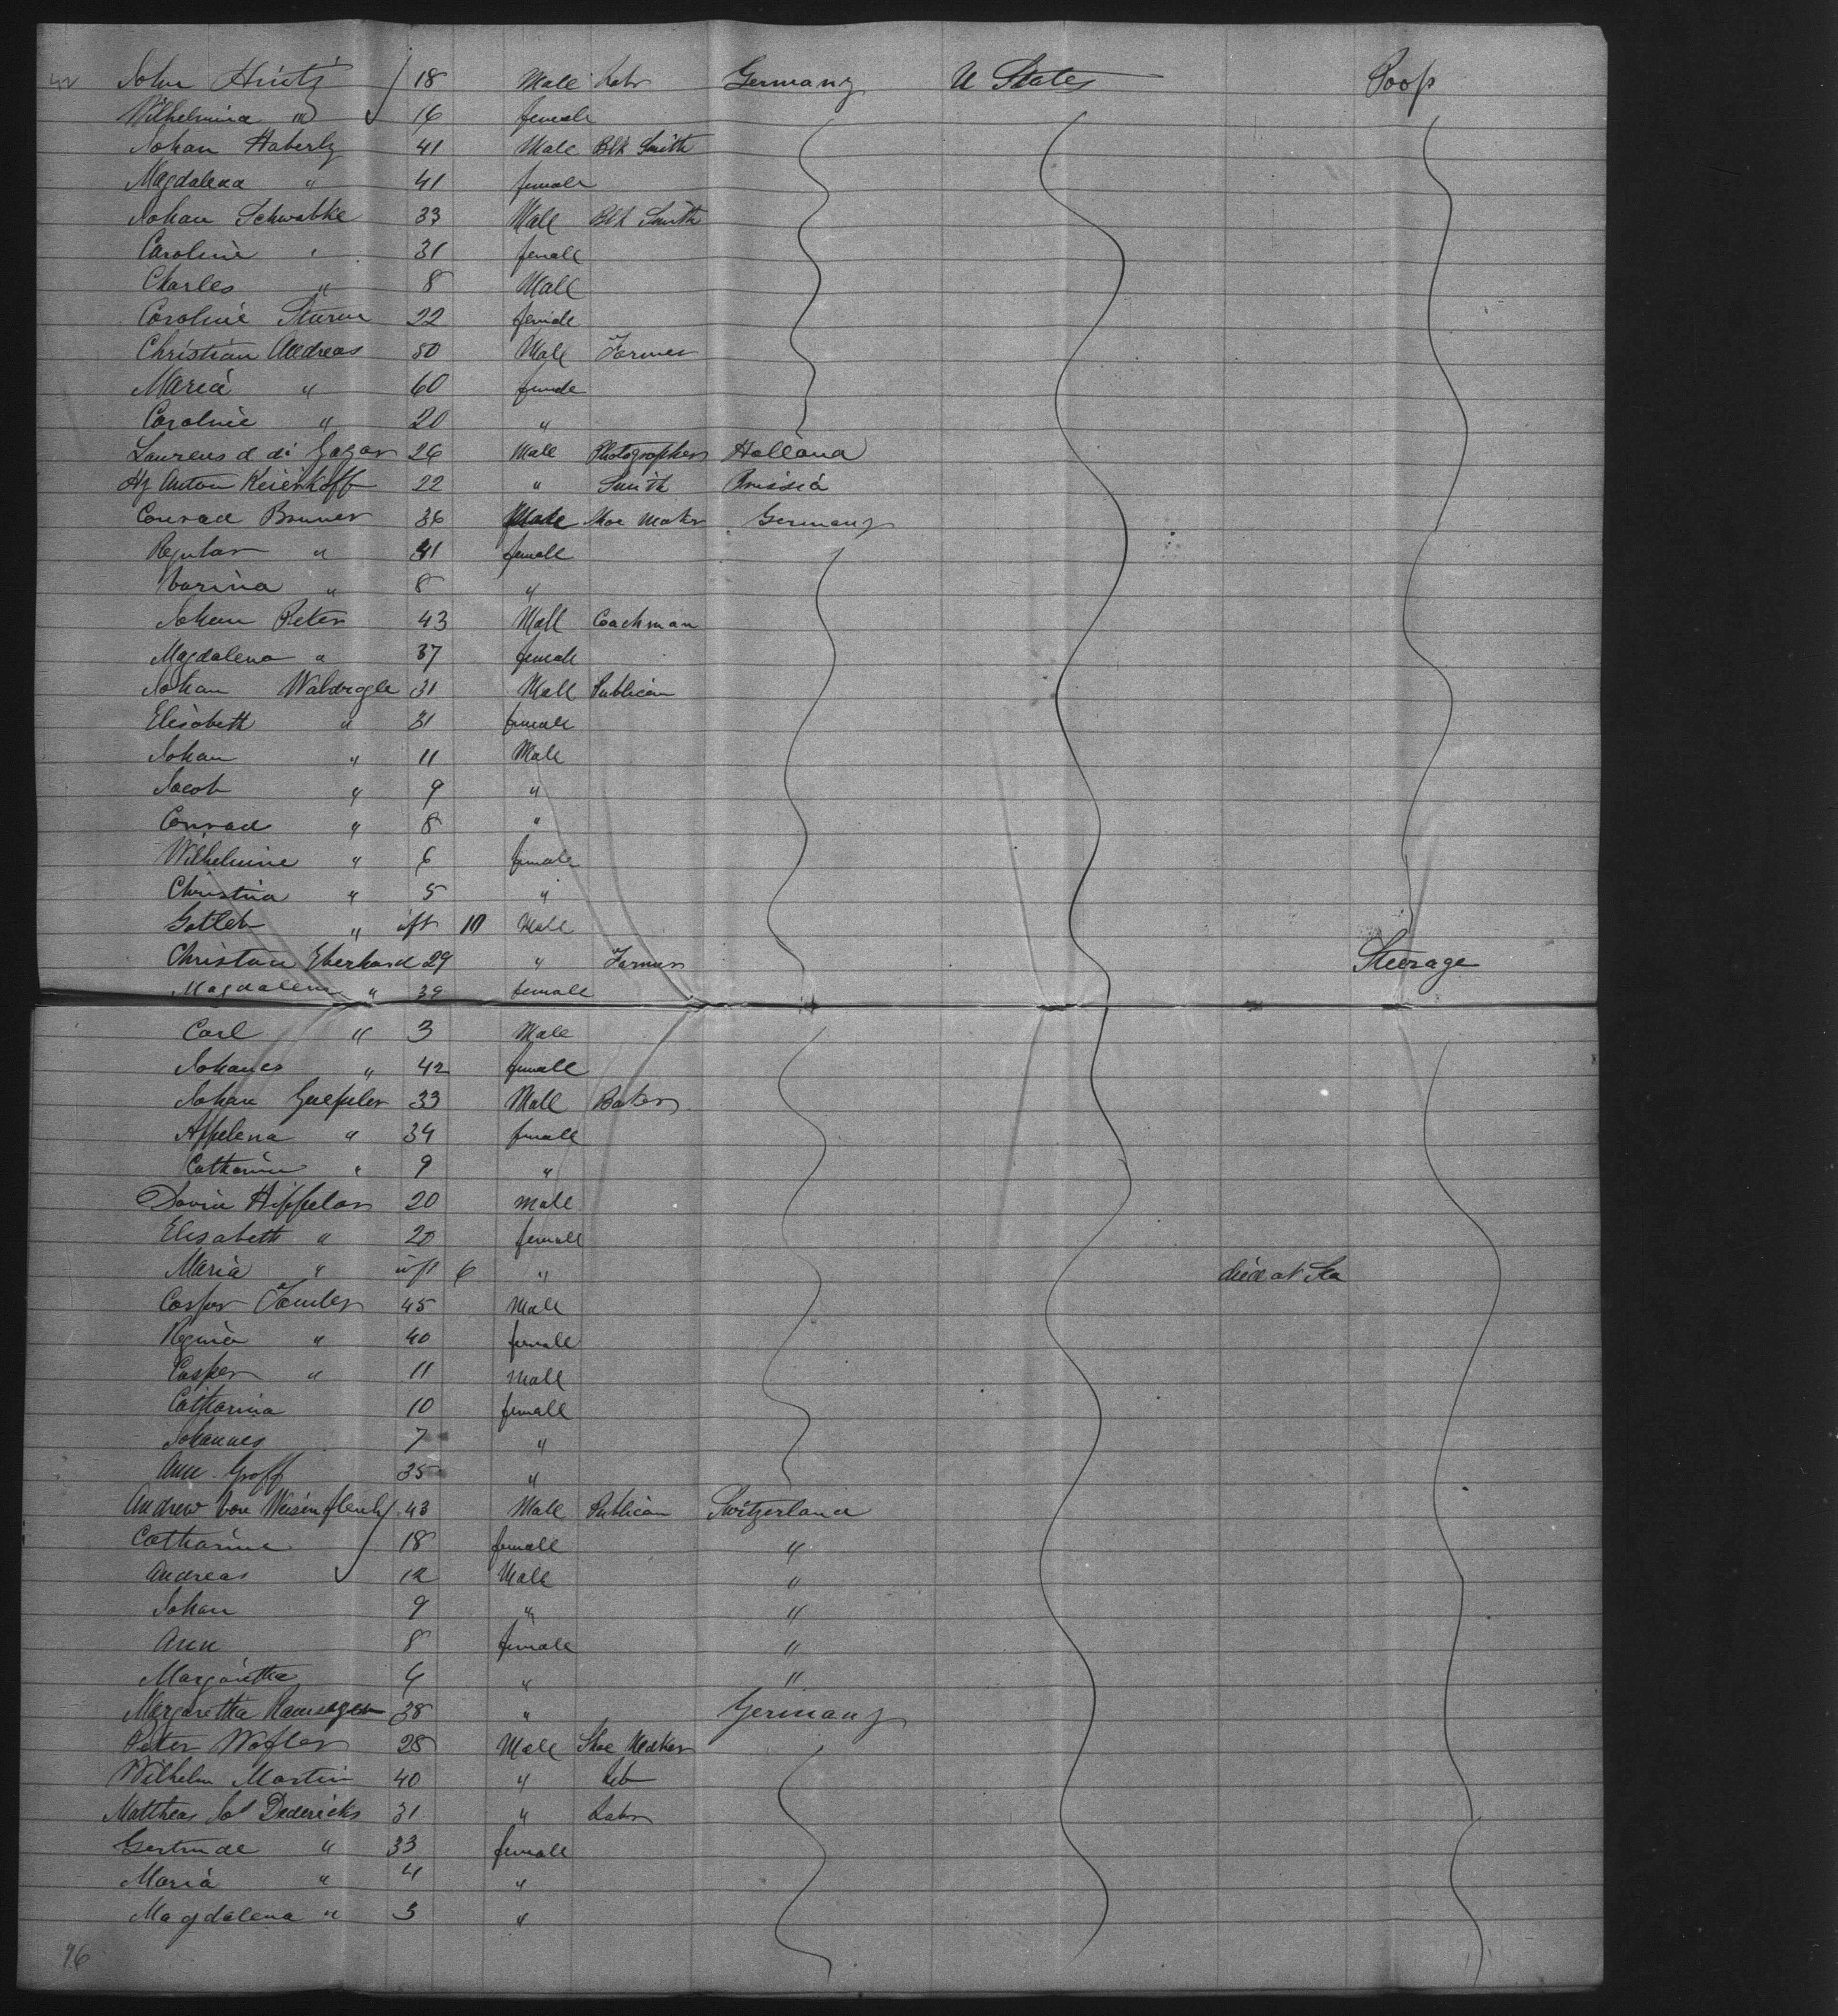 42 John Hintz 18 Male Labr Germany U States Poop
Wilhelmina " 16 female
Johan Haberly 41 Male Blk Smith
Magdalena " 41 female
Johan Schwabke 33 Male Blk Smith
Caroline " 31 female
Charles " 8 Male
Caroline Sturm 22 female
Christian Andreas 50 Male Farmer
Maria " 60 female
Caroline " 20 "
Laurens d di 26 Male Photographer Holland
Hy Anton Keienhoff 22 " Smith Prussia
Conrad Brunner 36 Male Shoe Maker Germany
Regular " 41 female
" 8 "
Johan Peter 43 Male Coachman
Magdalena " 37 female
Johan Waldvogle 31 Male Publican
Elisabeth " 31 female
Johan " 11 Male
Jacob " 9 "
Conrad " 8 "
Wilhelmine " 6 female
Christina " 5 "
Gotleb " inft 10 Male
Christian Eberhard 29 " Farmer Steerage
Magdalena " 39 female
Carl " 3 Male
Johanes " 42 female
Johan 33 Male Baker
Appelena " 34 female
Catharine " 9 "
Hippelar 20 Male
Elisabeth " 20 female
Maria " inft 6 " died at Sea
Casper 45 Male
Regina " 40 female
Casper " 11 Male
Catharina 10 female
Johannes 7 "
Ann Groff 35 "
Andrew Von 43 Male Publican Switzerland
Catharine 18 female "
Andreas 12 Male "
Johan 9 " "
Ann 8 female "
Margaretha 6 " "
Margaretha 38 " Germany
Peter Wafler 28 Male Shoe Maker
Wilhelm Martin 40 " Lab
Mattheas Jos Dedericks 31 " Labr
Gertrude " 33 female
Maria " 4 "
Magdalena " 3 "
96